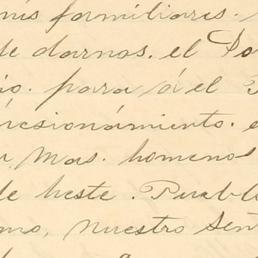 mis formiliares.
de darnos. el So
io. para á el
resionámiento. e
u mas. homenos
de heste. Pueblo
mo, nuestro Señ